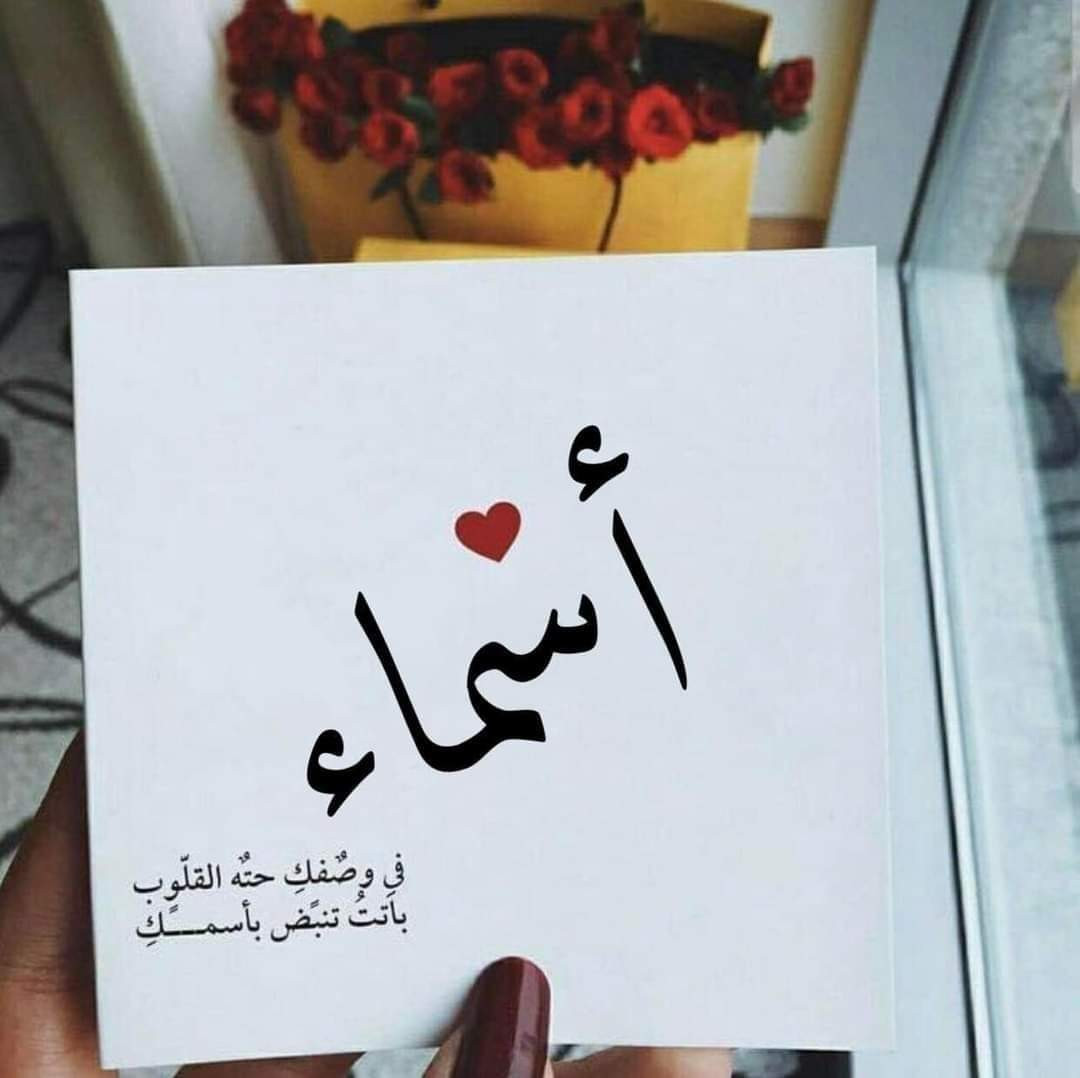 أسماء
في وصٌفكِ حتهٌ القلّوب
باَتتُ تنبًض بأسمـــكًِ